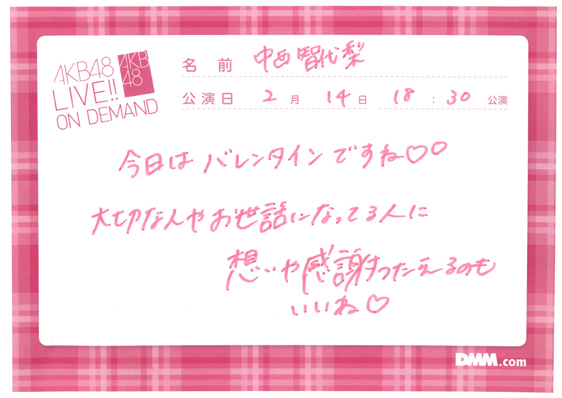 AKB48
LIVE!!
ON DEMAND
AKB
48
名前 中西智代梨
公演日 2月14日 18:30公演
今日はバレンタインですね♡♡
大切な人やお世話になってる人に
想いや感謝をつたえるのも
いいね♡
DMM.com